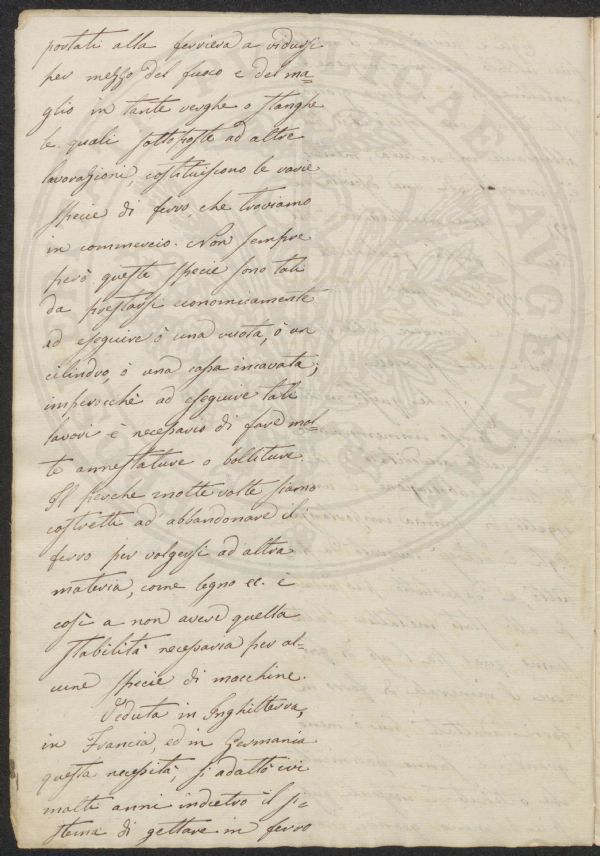 portati alla ferriera a ridursi
per mezzo del fuoco e del ma=
glio in tante verghe o stanghe
le quali sottoposte ad altre
lavorazioni, costituiscono le varie
specie di ferro, che troviamo
in commercio. Non sempre
però queste specie sono tali
da prestarsi economicamente
ad eseguire ò una ruota, ò un
cilindro, ò una cassa incavata;
imperocchè ad eseguire tali
lavori è necessario di fare mol=
te annestature o bolliture.
Il perche molte volte siamo
costretti ad abbandonare il
ferro per volgersi ad altra
materia, come legno ec. e
così a non avere quella
stabilità necessaria per al=
cune specie di macchine.
Veduta in Inghilterra,
in Francia ed in Germania
questa necessità, si adattò ivi
molti anni indietro il si=
stema di gettare in ferro